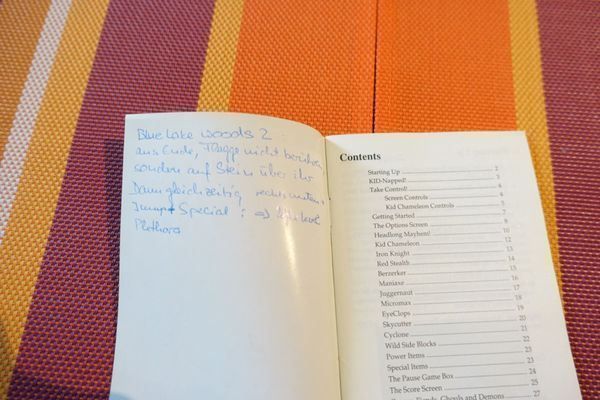 Blue Lake woods 2 :
am Ende, Flagge nicht berühren,
sondern auf Stein über ihr
Dann gleichzeitig rechts unten +
Jump + Special : =>
Plethora
Contents
Starting Up 2
KID-Napped! 3
Take Control! 4
Screen Controls 4
Kid Chameleon Controls 5
Getting Started 7
The Options Screen 7
Headlong Mayhem! 9
Kid Chameleon 10
Iron Knight 12
Red Stealth 13
Berzerker 14
Maniaxe 15
Juggernaut 16
Micromax 17
EyeClops 18
Skycutter 19
Cyclone 20
Wild Side Blocks 21
Power Items 22
Special Items 23
The Pause Game Box 23
The Score Screen 24
Fiends, Ghouls and Demons 25
27